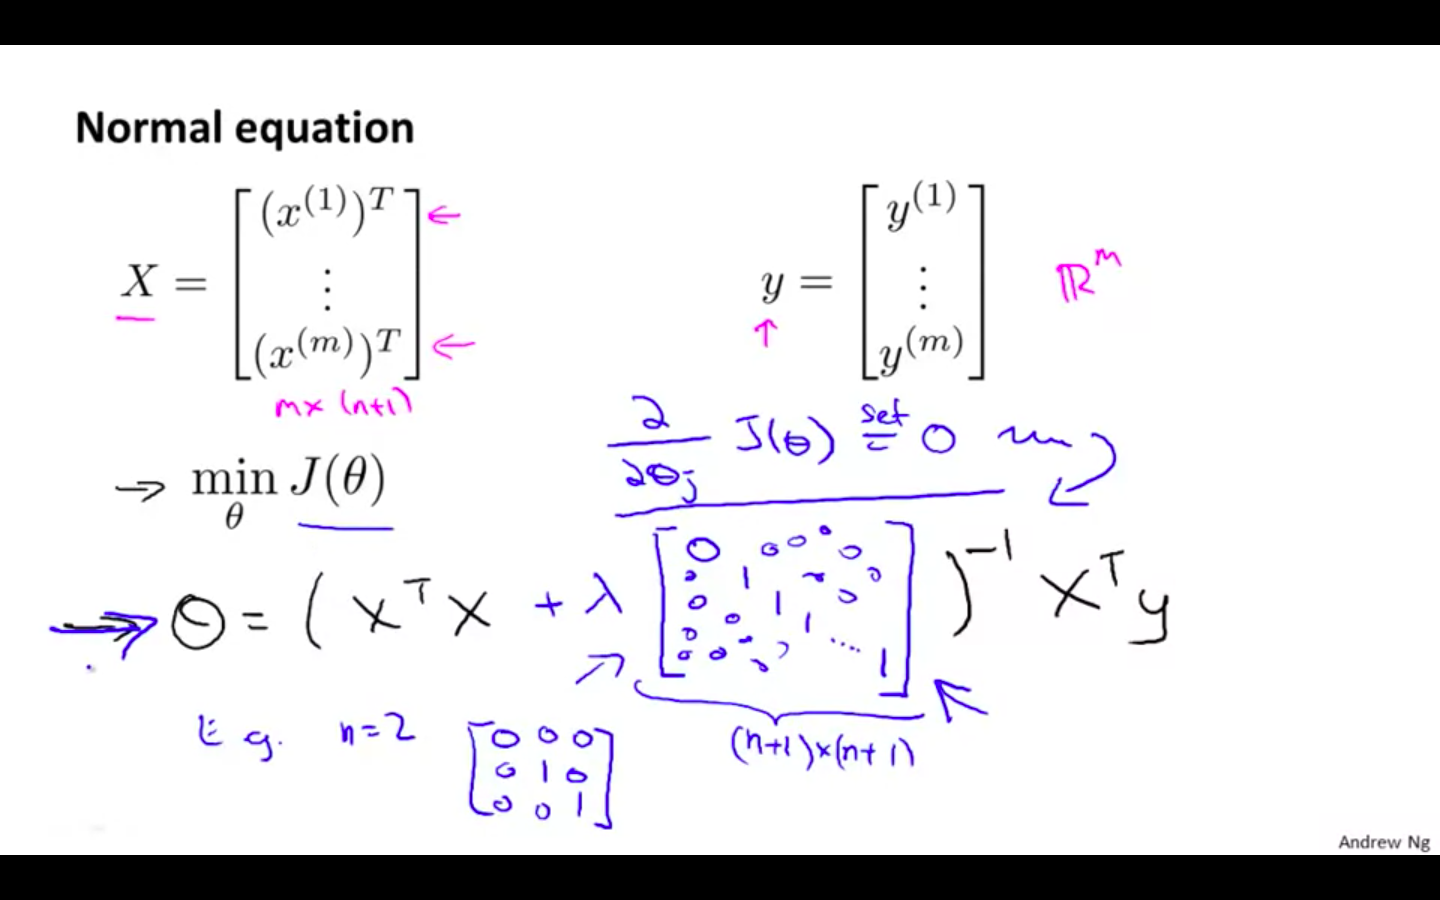 Normal equation
X = [ (x^(1))^T ⋮ (x^(m))^T ] ←
←
m × (n+1)
y = [ y^(1) ⋮ y^(m) ] ℝ^m
↑
∂/∂θj J(θ) set = 0
→ min_θ J(θ)
→ θ = ( X^T X + λ [ 0 0 0 0 0 1 0 0 0 1 0 0 1 0 0 ... 1 ] )^-1 X^T y
(n+1)×(n+1)
E.g. n=2 [ 0 0 0
0 1 0
0 0 1 ]
Andrew Ng